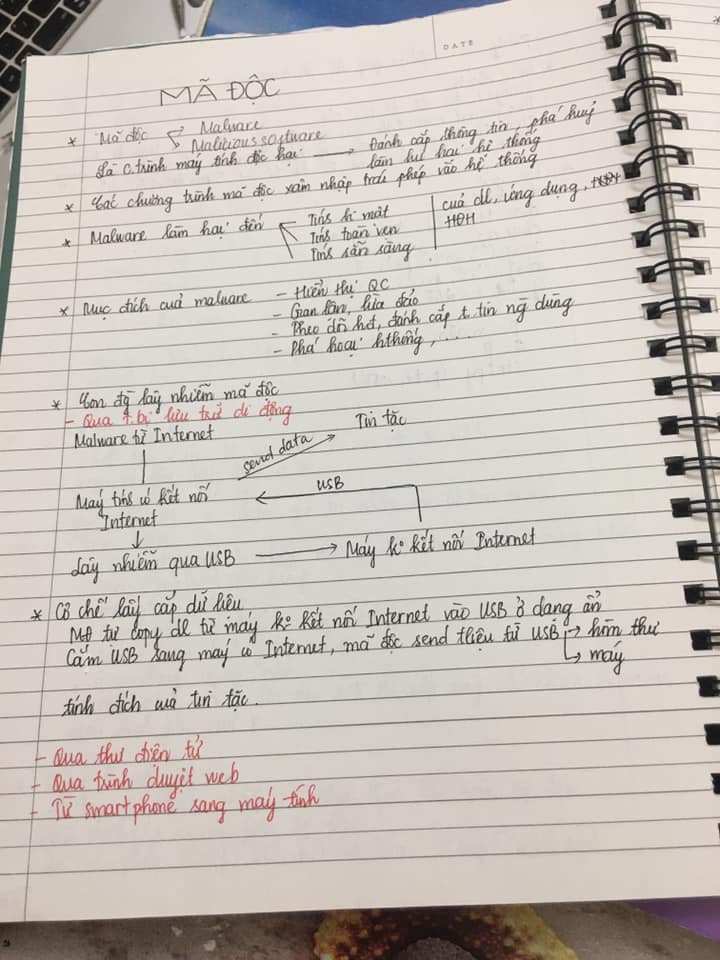 DATE
MÃ ĐỘC
* Mã độc Malware
Malicious software
Là c.trình máy tính độc hại → Đánh cắp thông tin, phá huỷ
làm hư hại hệ thống
* Các chương trình mã độc xâm nhập trái phép vào hệ thống
* Malware làm hại đến Tính bí mật
Tính toàn vẹn
Tính sẵn sàng
của dl, ứng dụng,
HĐH
* Mục đích của malware - Hiển thị QC
- Gian lận, lừa đảo
- Theo dõi hđ, đánh cắp t.tin ng dùng
- Phá hoại hthống, ...
* Con đg lây nhiễm mã độc
- Qua t.bị lưu trữ di động
Malware từ Internet
Tin tặc
send data
Máy tính có kết nối
Internet
USB
Lây nhiễm qua USB → Máy ko kết nối Internet
* Cơ chế lấy cắp dữ liệu
MĐ tự copy dl từ máy ko kết nối Internet vào USB ở dạng ẩn
Cắm USB sang máy có Internet, mã độc send tliệu từ USB → hòm thư
→ máy
tính đích của tin tặc.
- Qua thư điện tử
- Qua trình duyệt web
- Từ smartphone sang máy tính